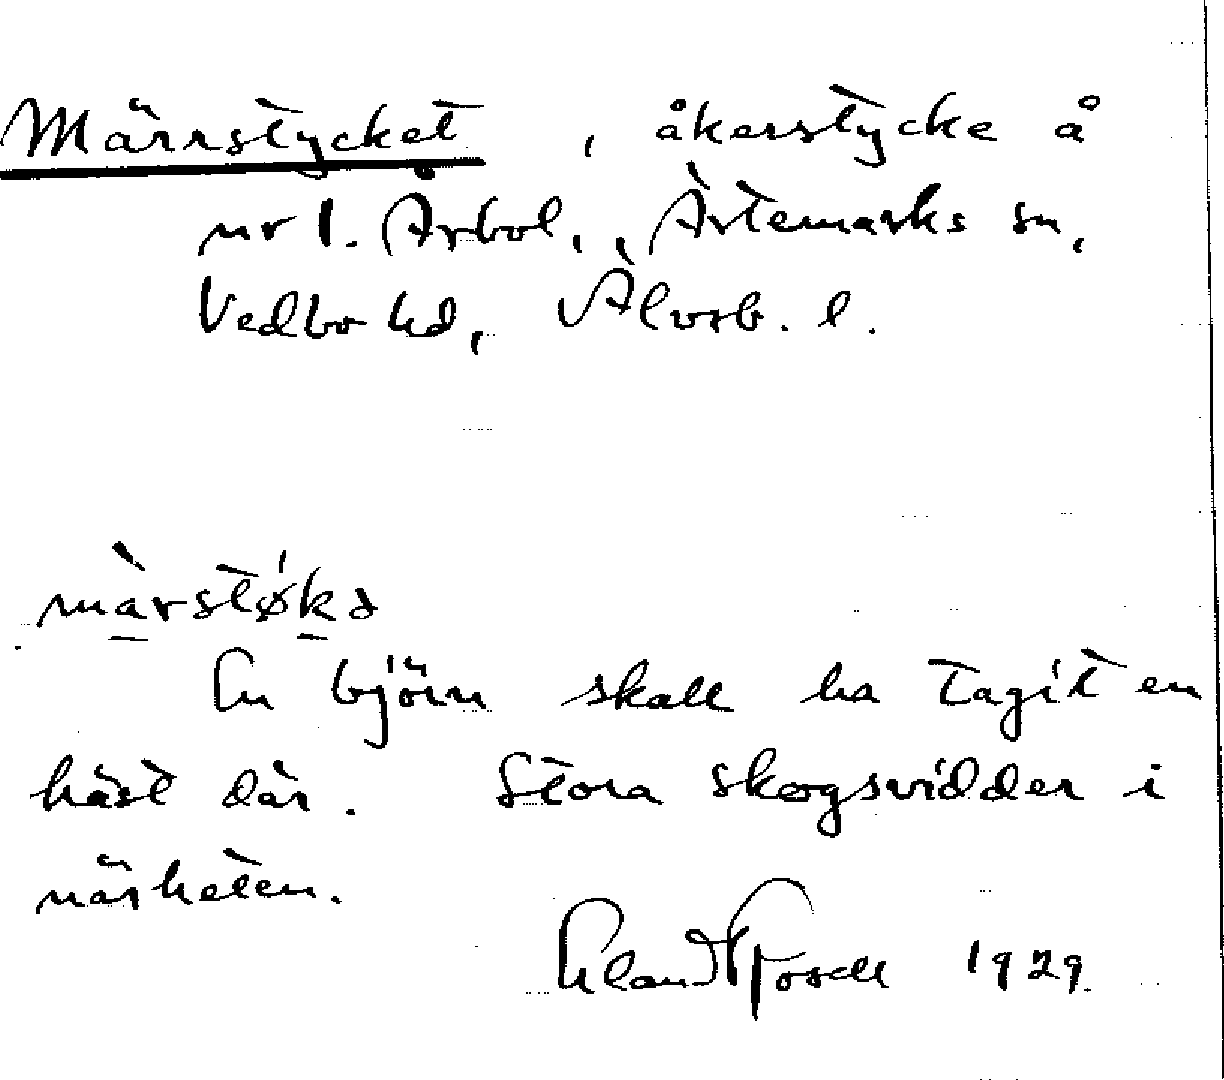 Märrstycket, åkerstycke å
nr 1. Årbol, Ärtemarks sn,
Vedbo hd, Älvsb. l.
màrstø̀kə
En björn skall ha tagit en
häst där. Stora skogsvidder i
närheten.
1929